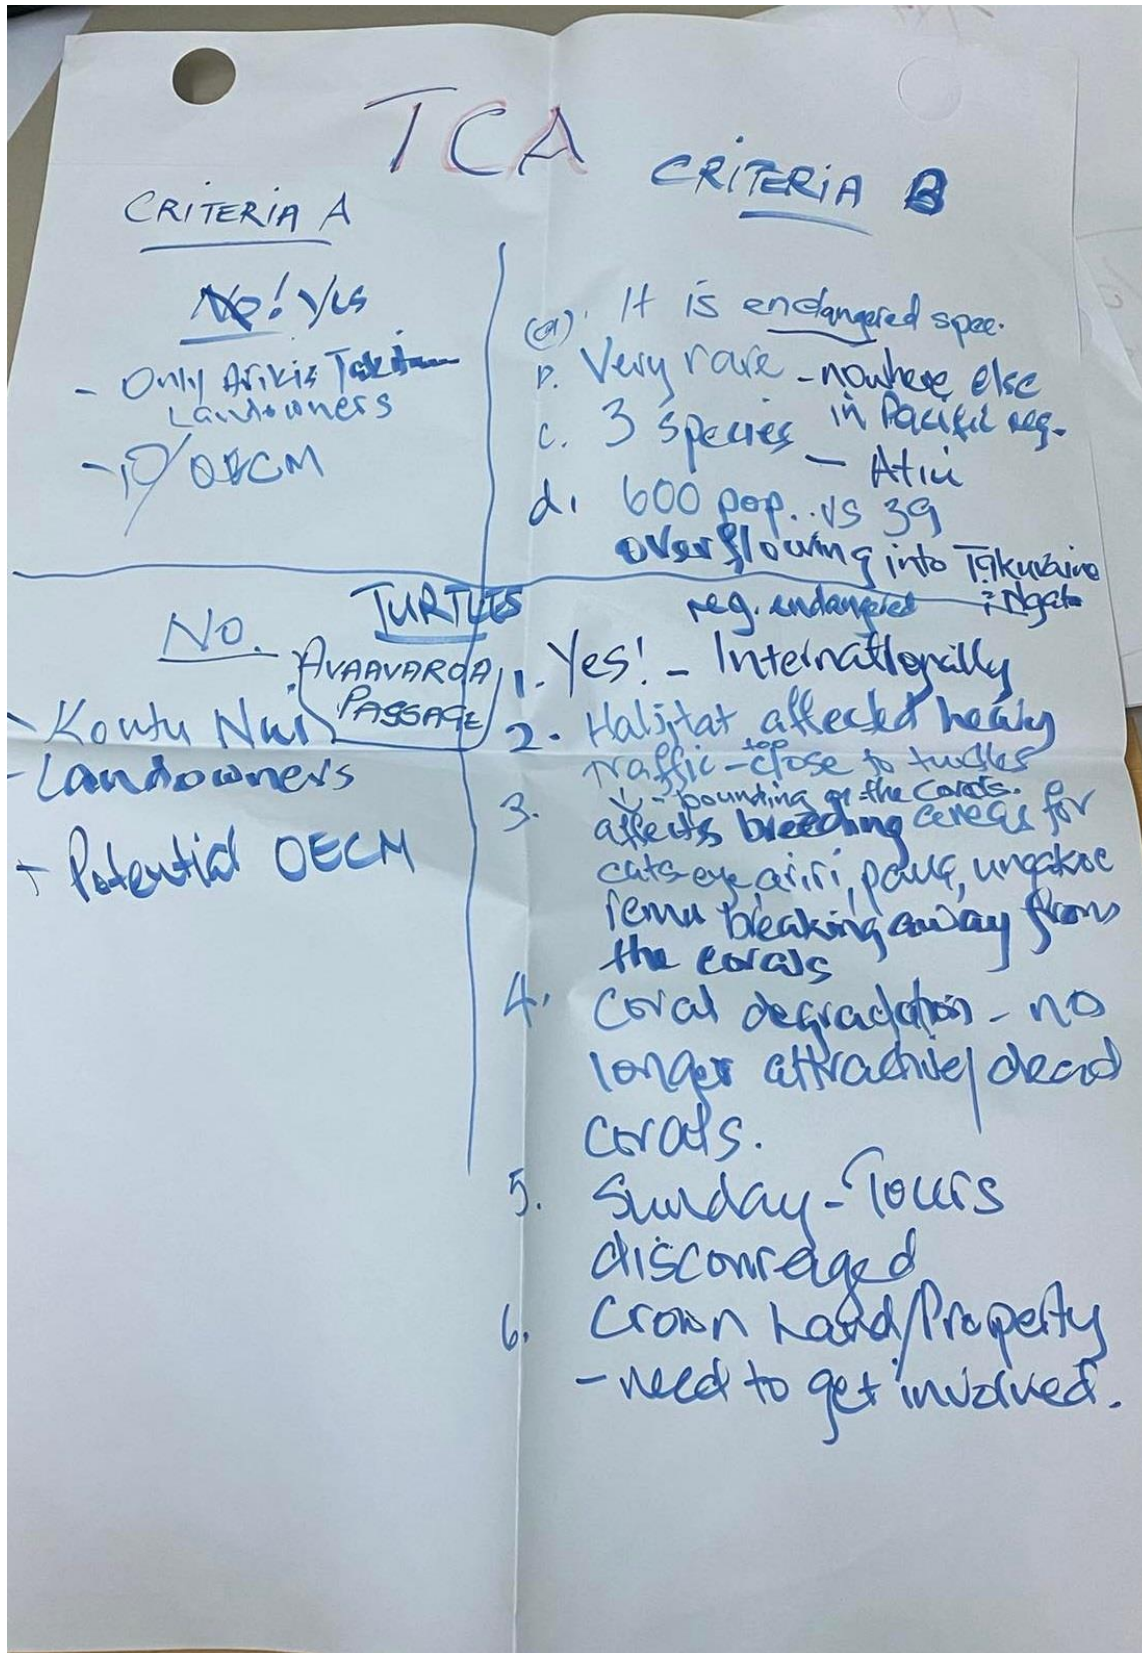 TCA
CRITERIA A
No! Yes
- Only Arikis
Landowners
OECM
CRITERIA B
(a). It is endangered spee.
Very rare - nowhere else
in Pacific reg.
c. 3 species - Atiu
d. 600 pop.. vs 39
overflowing into Takuvaine
TURTLES
AVAAVAROA
PASSAGE
No.
- Koutu Nui
- Landowners
+ Potential OECM
reg. endangered
1. Yes! - Internationally
2. Habitat affected heavy
traffic - too close to turtles
- pounding on the corals.
3. affects breeding areas for
cats eye, ariri, paua, ungakoe
remu breaking away from
the corals
4. Coral degradation - no
longer attractive/dead
corals.
5. Sunday - Tours
discouraged
6. Crown Land/Property
- need to get involved.